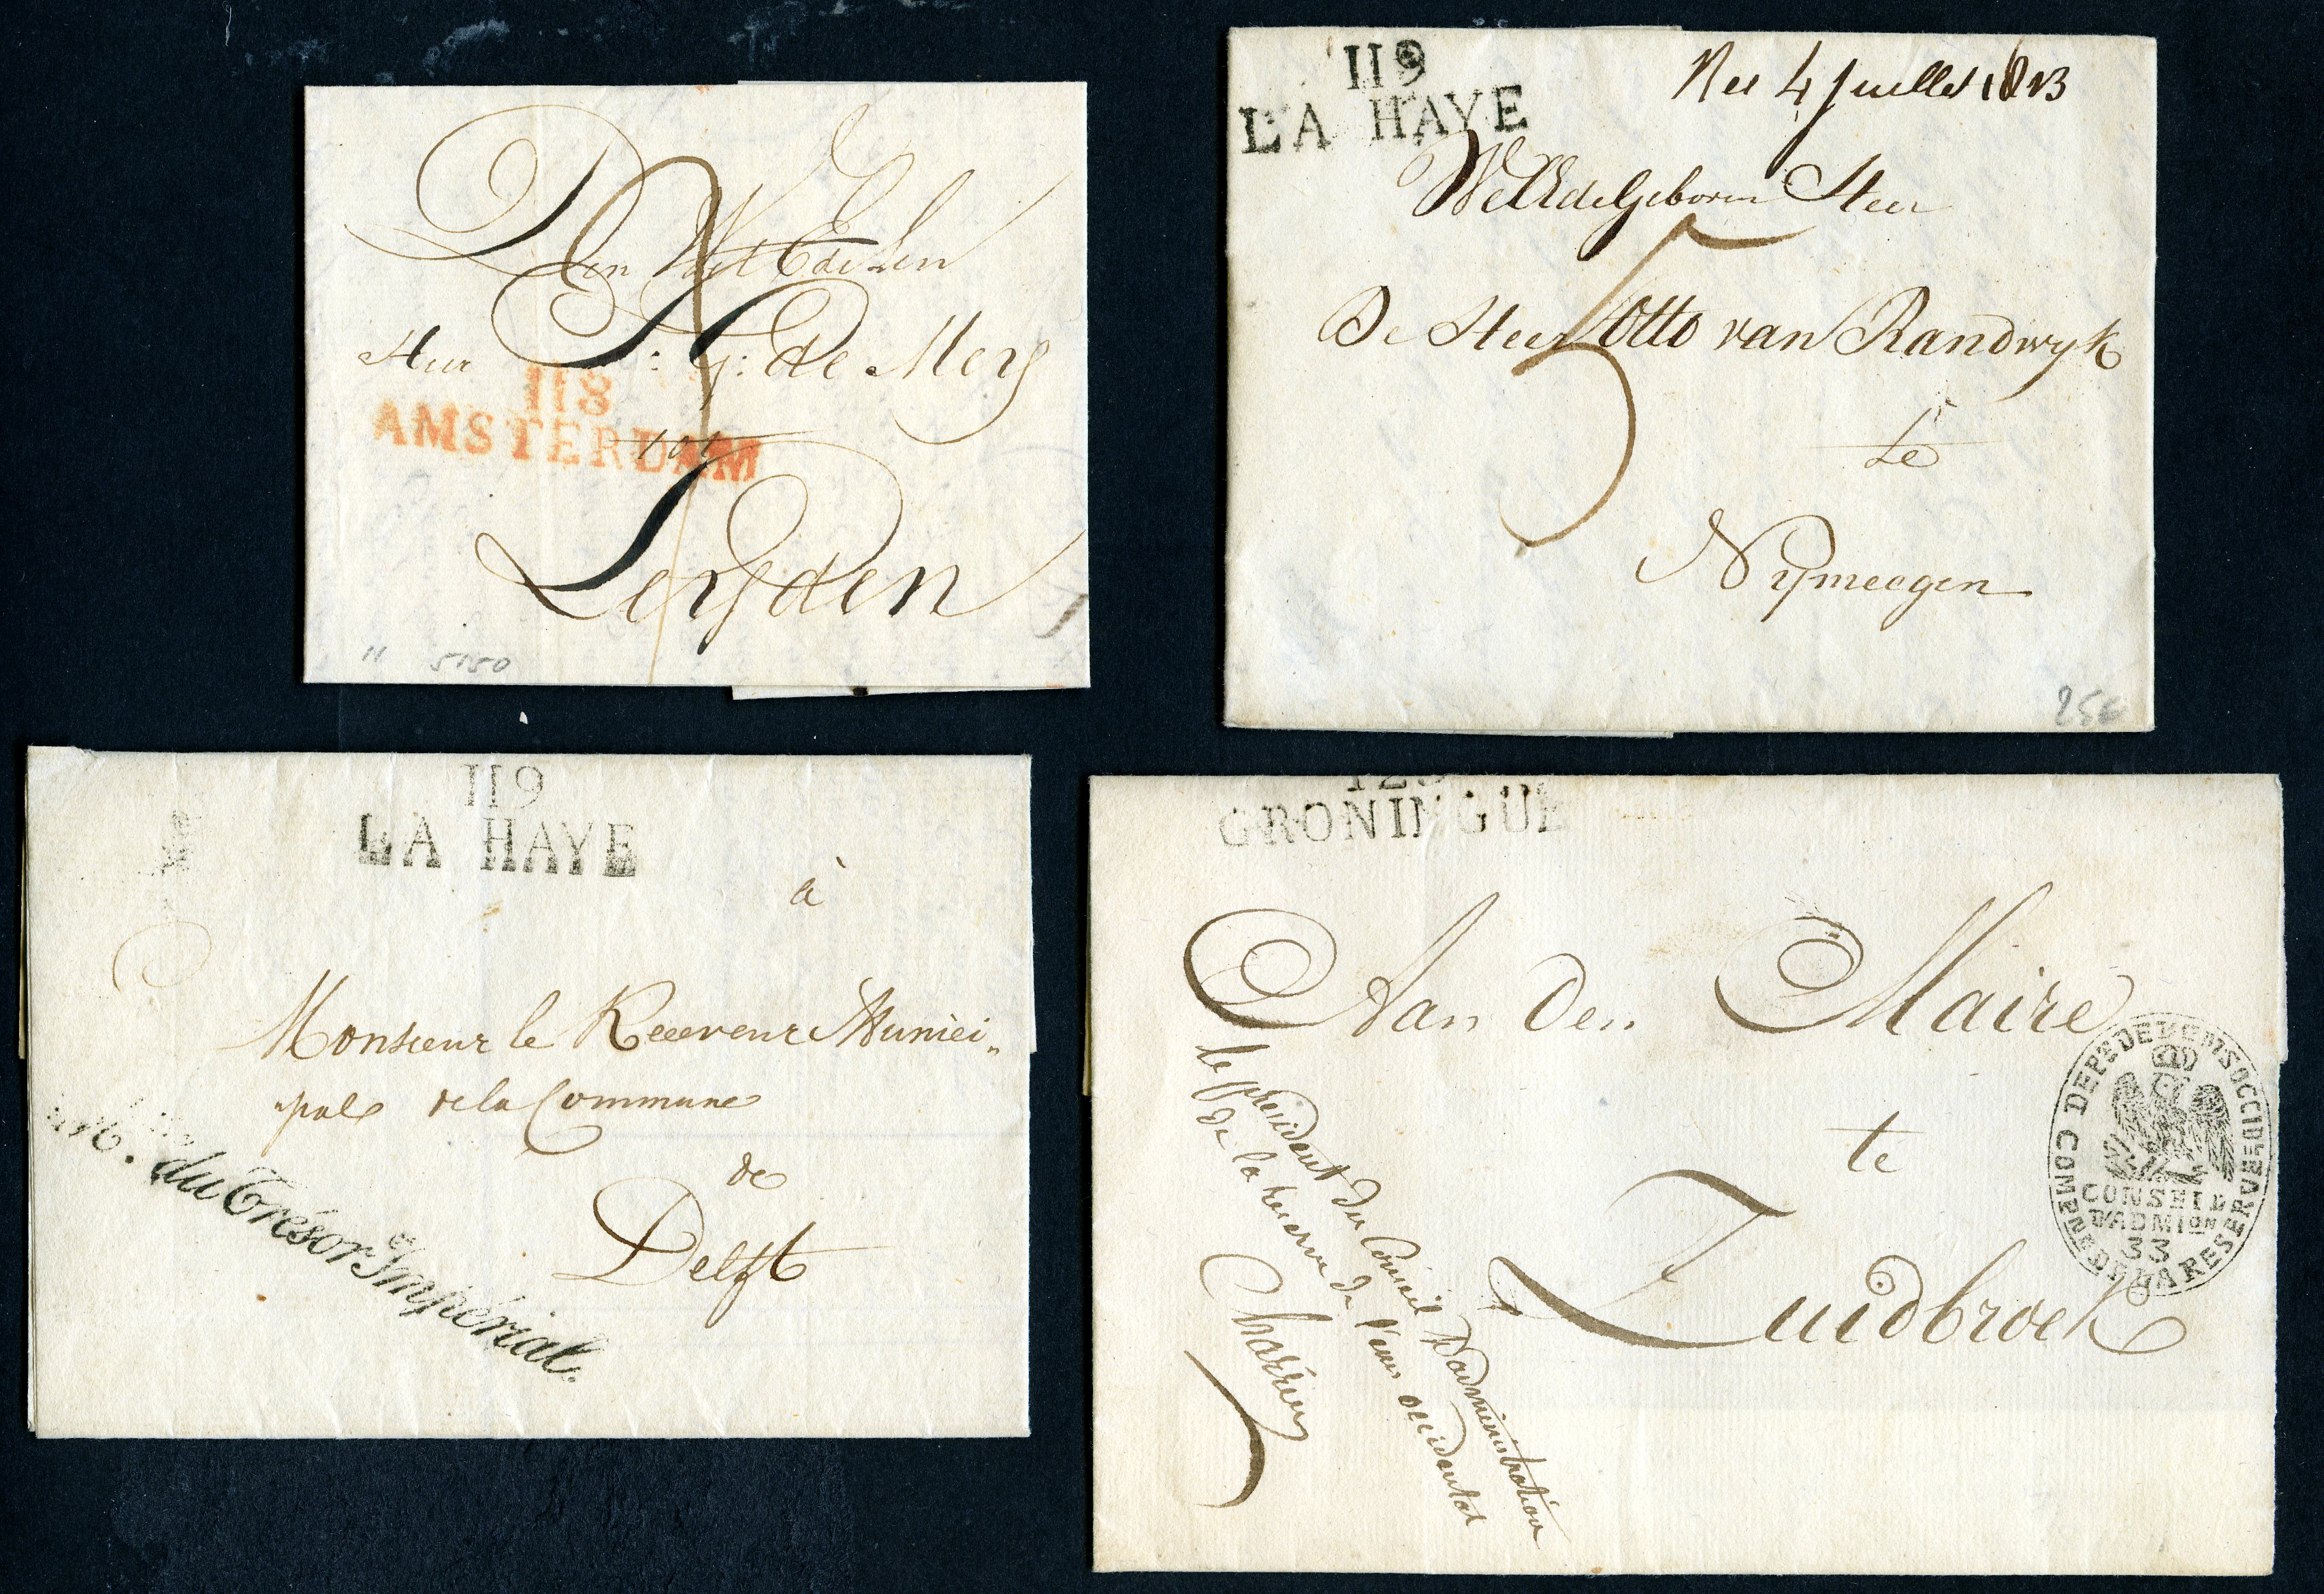 Den Wel Edelen
Heer
de Mey
118
AMSTERDAM
tot
Leyden
11 5150
119
LA HAYE
4 Juillet 1813
WelEdelgeboren Heer
De Heer Otto van Randwyk
5
te
Nijmeegen
119
LA HAYE
à
Monsieur le Receveur Munici-
pale de la Commune
de
Delft
du Trésor Impérial.
GRONINGUE
Aan den Maire
te
Zuidbroek
le président du Conseil D'administration
de la reserve de l'ems occidental
DEPT DE L'EMS OCCIDENTAL
COMP DE RESERVE
CONSEIL
D'ADMION
33